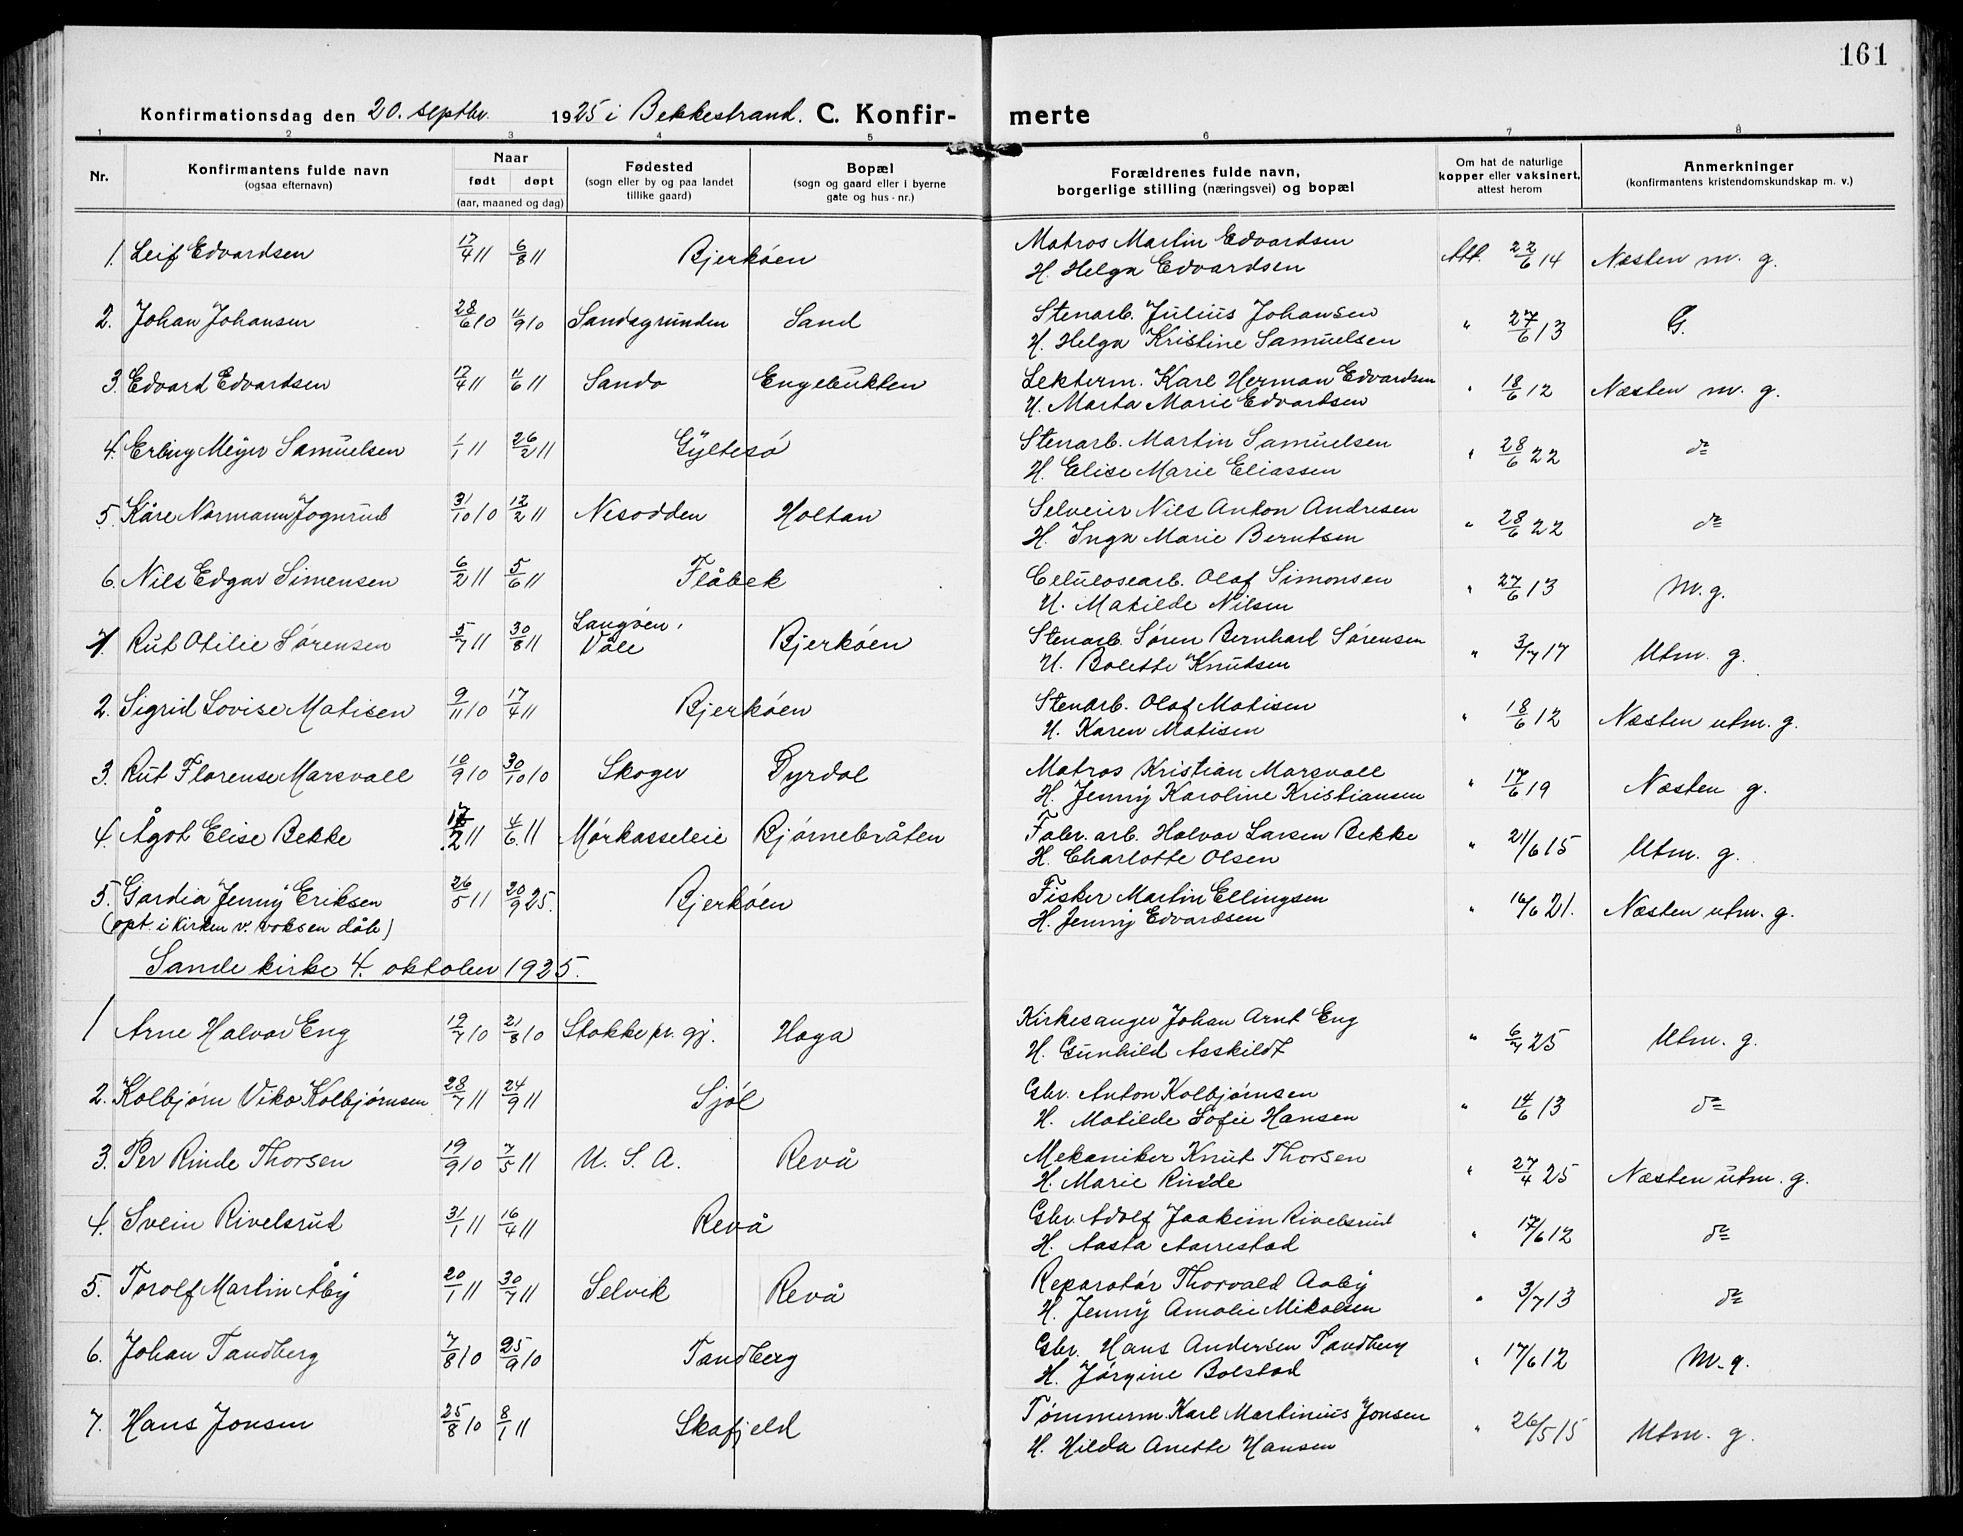 161
Konfirmationsdag den 20. septbr. 1925 i Bekkestrand. C. Konfirmerte
1 2 3 4 5 6 7 8
Nr. Konfirmantens fulde navn (ogsaa efternavn) Naar født døpt (aar, maaned og dag) Fødested (sogn eller by og paa landet tillike gaard) Bopæl (sogn og gaard eller i byerne gate og hus-nr.) Forældrenes fulde navn, borgerlige stilling (næringsvei) og bopæl Om hat de naturlige kopper eller vaksinert, attest herom Anmerkninger (konfirmantens kristendomskundskap m. v.)
1. Leif Edvardsen 17/4 11 6/8 11 Bjerkøen Matros Martin Edvardsen Att. 22/6 14 Næsten m. g.
H. Helga Edvardsen
2. Johan Johansen 28/6 10 11/9 10 Sandsgrunden Sand Stenarb. Julius Johansen " 27/6 13 G.
H. Helga Kristine Samuelsen
3. Edvard Edvardsen 17/4 11 11/6 11 Sando Engebukten Lekterm. Karl Herman Edvardsen " 18/6 12 Næsten m. g.
H. Marta Marie Edvardsen
4. Erling Meyer Samuelsen 1/1 11 26/2 11 Gyltesø Stenarb. Martin Samuelsen " 28/6 22 do
H. Elise Marie Eliassen
5. Kåre Normann Jognrud 31/10 10 12/2 11 Nesodden Holtan Selveier Nils Anton Andresen " 28/6 22 do
H. Inga Marie Berntsen
6. Nils Edgar Simensen 6/2 11 5/6 11 Flåbek Celulosearb. Olaf Simonsen " 27/6 13 M. g.
H. Matilde Nilsen
1. Rut Otilie Sørensen 5/7 11 30/8 11 Langøen, Våle Bjerkøen Stenarb. Søren Bernhard Sørensen " 3/7 17 Utm. g.
H. Bolette Knudsen
2. Sigrid Lovise Matisen 9/11 10 17/4 11 Bjerkøen Stenarb. Olaf Matisen " 18/6 12 Næsten utm. g.
H. Karen Matisen
3. Rut Florense Marsvall 10/9 10 30/10 10 Skoger Dyrdal Matros Kristian Marsvall " 17/6 19 Næsten g.
H. Jenny Karoline Kristiansen
4. Ågot Elise Bekke 17/2 11 4/6 11 Mørkasseleie Bjørnebråten Fabr. arb. Halvor Larsen Bekke " 21/6 15 Utm. g.
H. Charlotte Olsen
5. Gardia Jenny Eriksen 26/5 11 20/9 25. Bjerkøen Fisker Martin Ellingsen " 16/6 21. Næsten utm. g.
(opt. i kirken v. voksen dåb) H. Jenny Edvardsen
Sande kirke 4. oktober 1925.
1 Arne Halvor Eng 19/7 10 21/8 10 Stokke pr. gj. Haga Kirkesanger Johan Arnt Eng " 6/7 25 Utm. g.
H. Gunhild Asskildt
2. Kolbjørn Viko Kolbjørnsen 28/7 11 24/9 11 Sjøl Gbr. Anton Kolbjørnsen " 14/6 13 do
H. Matilde Sofie Hansen
3. Per Rinde Thorsen 19/9 10 7/5 11 U. S. A. Revå Mekaniker Knut Thorsen " 27/4 25 Næsten utm. g.
H. Marie Rinde
4. Svein Rivelsrud 31/1 11 16/4 11 Revå Gbr. Adolf Joakim Rivelsrud " 17/6 12 do
H. Aasta Aarrestad
5. Torolf Martin Åby 20/1 11 30/7 11 Selvik Revå Reparatør Thorvald Aaby " 3/7 13 do
H. Jenny Amalie Mikalsen
6. Johan Tandberg 7/8 10 25/9 10 Tandberg Gbr. Hans Andersen Tandberg " 17/6 12 M. g.
H. Jørgine Bolstad
7. Hans Jonsen 25/8 10 8/1 11 Skafjeld Tømmerm. Karl Martinius Jonsen " 26/5 15 Utm. g.
H. Hilda Anette Hansen